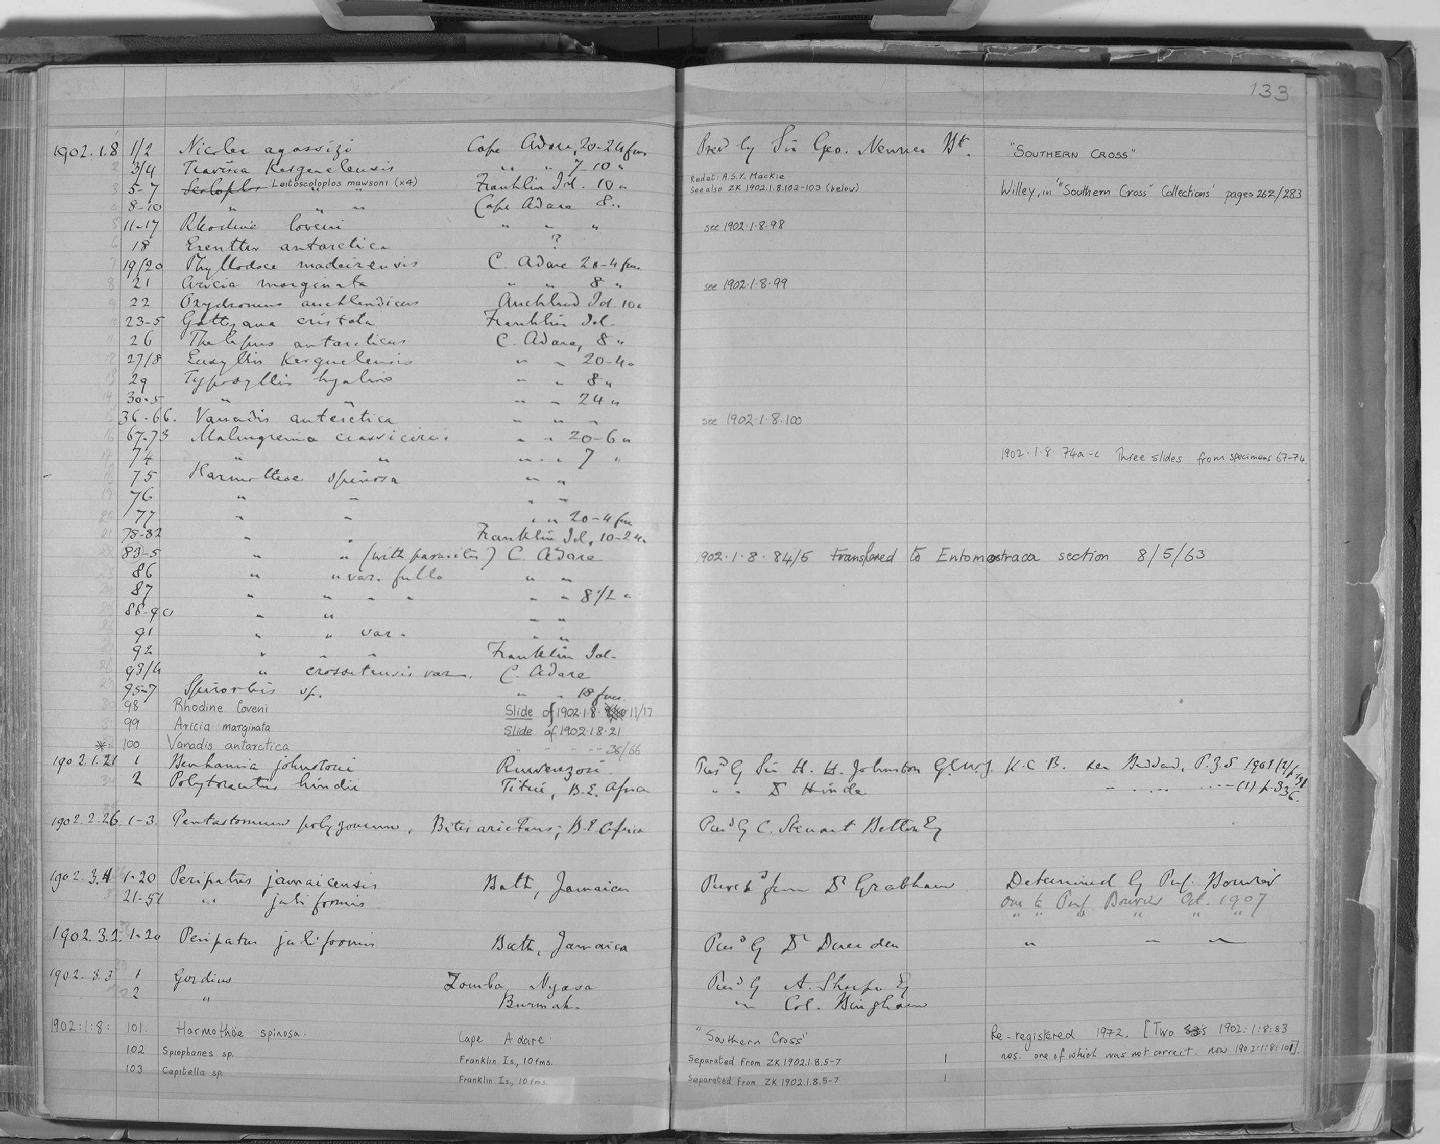 133
1902.1.8 1/2 Nicolea agassizi Cape Adare, 20-24 fms Pres'd by Sir Geo. Newnes Bt. "SOUTHERN CROSS"
3/4 Travisia Kerguelensis " " 7 10 "
5-7 Scoloplos Leitoscoloplos mawsoni (x4) Franklin Isl. 10 " Redet: A.S.Y. Mackie See also ZK 1902.1.8.102-103 (below) Willey, in "Southern Cross" Collections' pages 262/283
8-10 " " " Cape Adare 8 "
11-17 Rhodine loveni " " " see 1902.1.8.98
18 antarctica ?
19/20 Phyllodoce madeirensis C. Adare 20-4 fms
21 Aricia marginata " " 8 " see 1902.1.8.99
22 aucklandicus Auckland Isl. 10 "
23-5 Gattyana cristata Franklin Isl.
26 Thelepus antarcticus C. Adare, 8 "
27/8 Eusyllis Kerguelensis " " 20-4 "
29 Typosyllis hyalina " " 8 "
30-5 " " " " 24 "
36-66. Vanadis antarctica " " " see 1902.1.8.100
67-73 Malmgrenia crassicirris " " 20-6 "
74 " " " " 7 " 1902.1.8.74a-c Three slides from specimens 67-74
75 Harmothoe spinosa " "
76 " " " "
77 " " " " 20-4 fms
78-82 " " Franklin Isl, 10-24
83-5 " " (with parasites) C. Adare 1902.1.8.84/5 transfered to Entomostraca section 8/5/63
86 " " var. fullo " "
87 " " " " " " 8 1/2 "
88-90 " " " "
91 " " var. " "
92 " " " Franklin Isl.
93/4 " crosetensis var. C. Adare
95-7 Spirorbis sp. " " 18 fms.
98 Rhodine loveni Slide of 1902.1.8. 11/17
99 Aricia marginata Slide of 1902.1.8.21
* 100 Vanadis antarctica " " " " 36/66
1902.1.21 1 Benhamia johnstoni Ruwenzori Pres'd by Sir H. H. Johnston K.C.B. see Beddard, P.Z.S. 1901
2 Polytoreutus hindei B.E. Africa " " Dr Hinde
1902.2.26. 1-3. Pentastomum polyzonum, Bitis arietans, B.E. Africa Pres'd by C. Steuart Betton Esq
1902.3.4 1-20 Peripatus jamaicensis Bath, Jamaica Purch'd from Dr Grabham Determined by Prof. Bouvier
21-51 " juliformis " " Prof Bouvier Oct. 1907
1902.3.2. 1-20 Peripatus juliformis Bath, Jamaica Pres'd by Dr Duerden " " "
1902.3.3 1 Gordius Zomba, Nyasa Pres'd by A. Sharpe Esq
2 " Burmah. " Col. Bingham
1902:1:8: 101. Harmothöe spinosa. Cape Adare "Southern Cross" Re-registered 1972. [Two 1902:1:8:83
nos. one of which was not correct. now 1902:1:8:101].
102 Spiophanes sp. Franklin Is, 10 fms. Separated from ZK 1902.1.8.5-7 1
103 Capitella sp. Franklin Is, 10 fms. Separated from ZK 1902.1.8.5-7 1